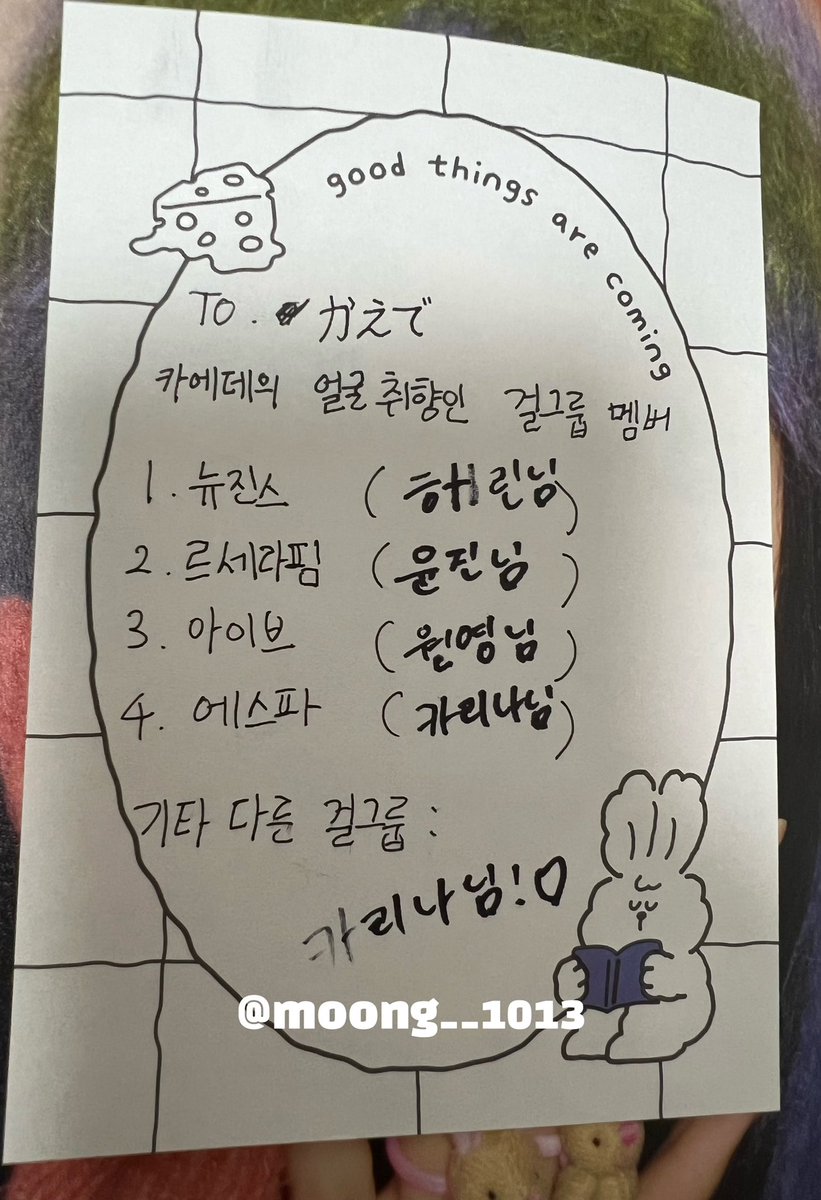 good things are coming
To. かえで
카에데의 얼굴 취향인 걸그룹 멤버
1. 뉴진스 (해린님)
2. 르세라핌 (윤진님)
3. 아이브 (원영님)
4. 에스파 (카리나님)
기타 다른 걸그룹 :
카리나님!♡
@moong__1013